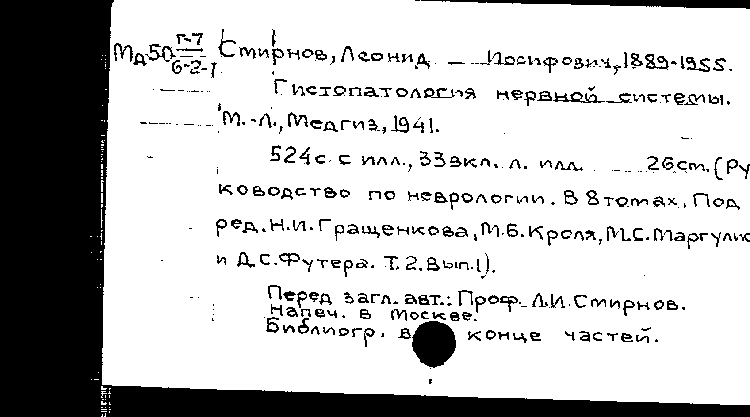 Мд50 Г-7/6-2-1 Смирнов, Леонид Иосифович, 1889-1955.
Гистопатология нервной системы.
М.-Л., Медгиз, 1941.
524с. с илл., 33вкл. л. илл. 26см. (Ру
ководство по неврологии. В 8 томах. Под
ред. Н.И. Гращенкова, М.Б. Кроля, М.С. Маргулис
и Д.С. Футера. Т. 2. Вып. 1).
Перед загл. авт.: Проф. Л.И. Смирнов.
Напеч. в Москве.
Библиогр. в конце частей.